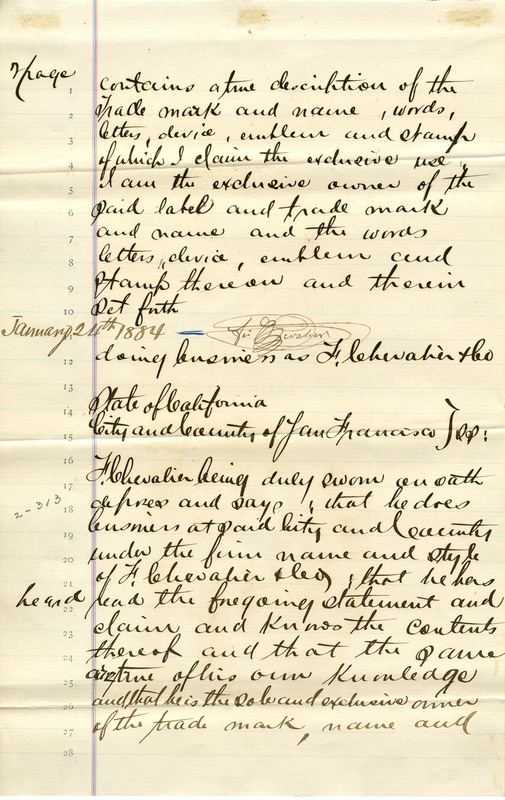 page
contains a true description of the
trade mark and name, words,
letters, device, emblem and stamp
of which I claim the exclusive use.
I am the exclusive owner of the
said label and trade mark
and name and the words
letters, device, emblem and
stamp thereon and therein
set forth
January 24th 1884 — Chevalier
doing business as F. Chevalier & Co
State of California
City and County of San Francisco } ss:
F. Chevalier being duly sworn on oath
deposes and says; that he does
2-313
business at said City and County
under the firm name and style
of F. Chevalier & Co; that he has
heard read the foregoing statement and
claim and knows the contents
thereof and that the same
is true of his own knowledge
and that he is the sole and exclusive owner
of the trade mark, name and
1
2
3
4
5
6
7
8
9
10
12
13
14
15
16
17
18
19
20
21
22
23
24
25
26
27
28